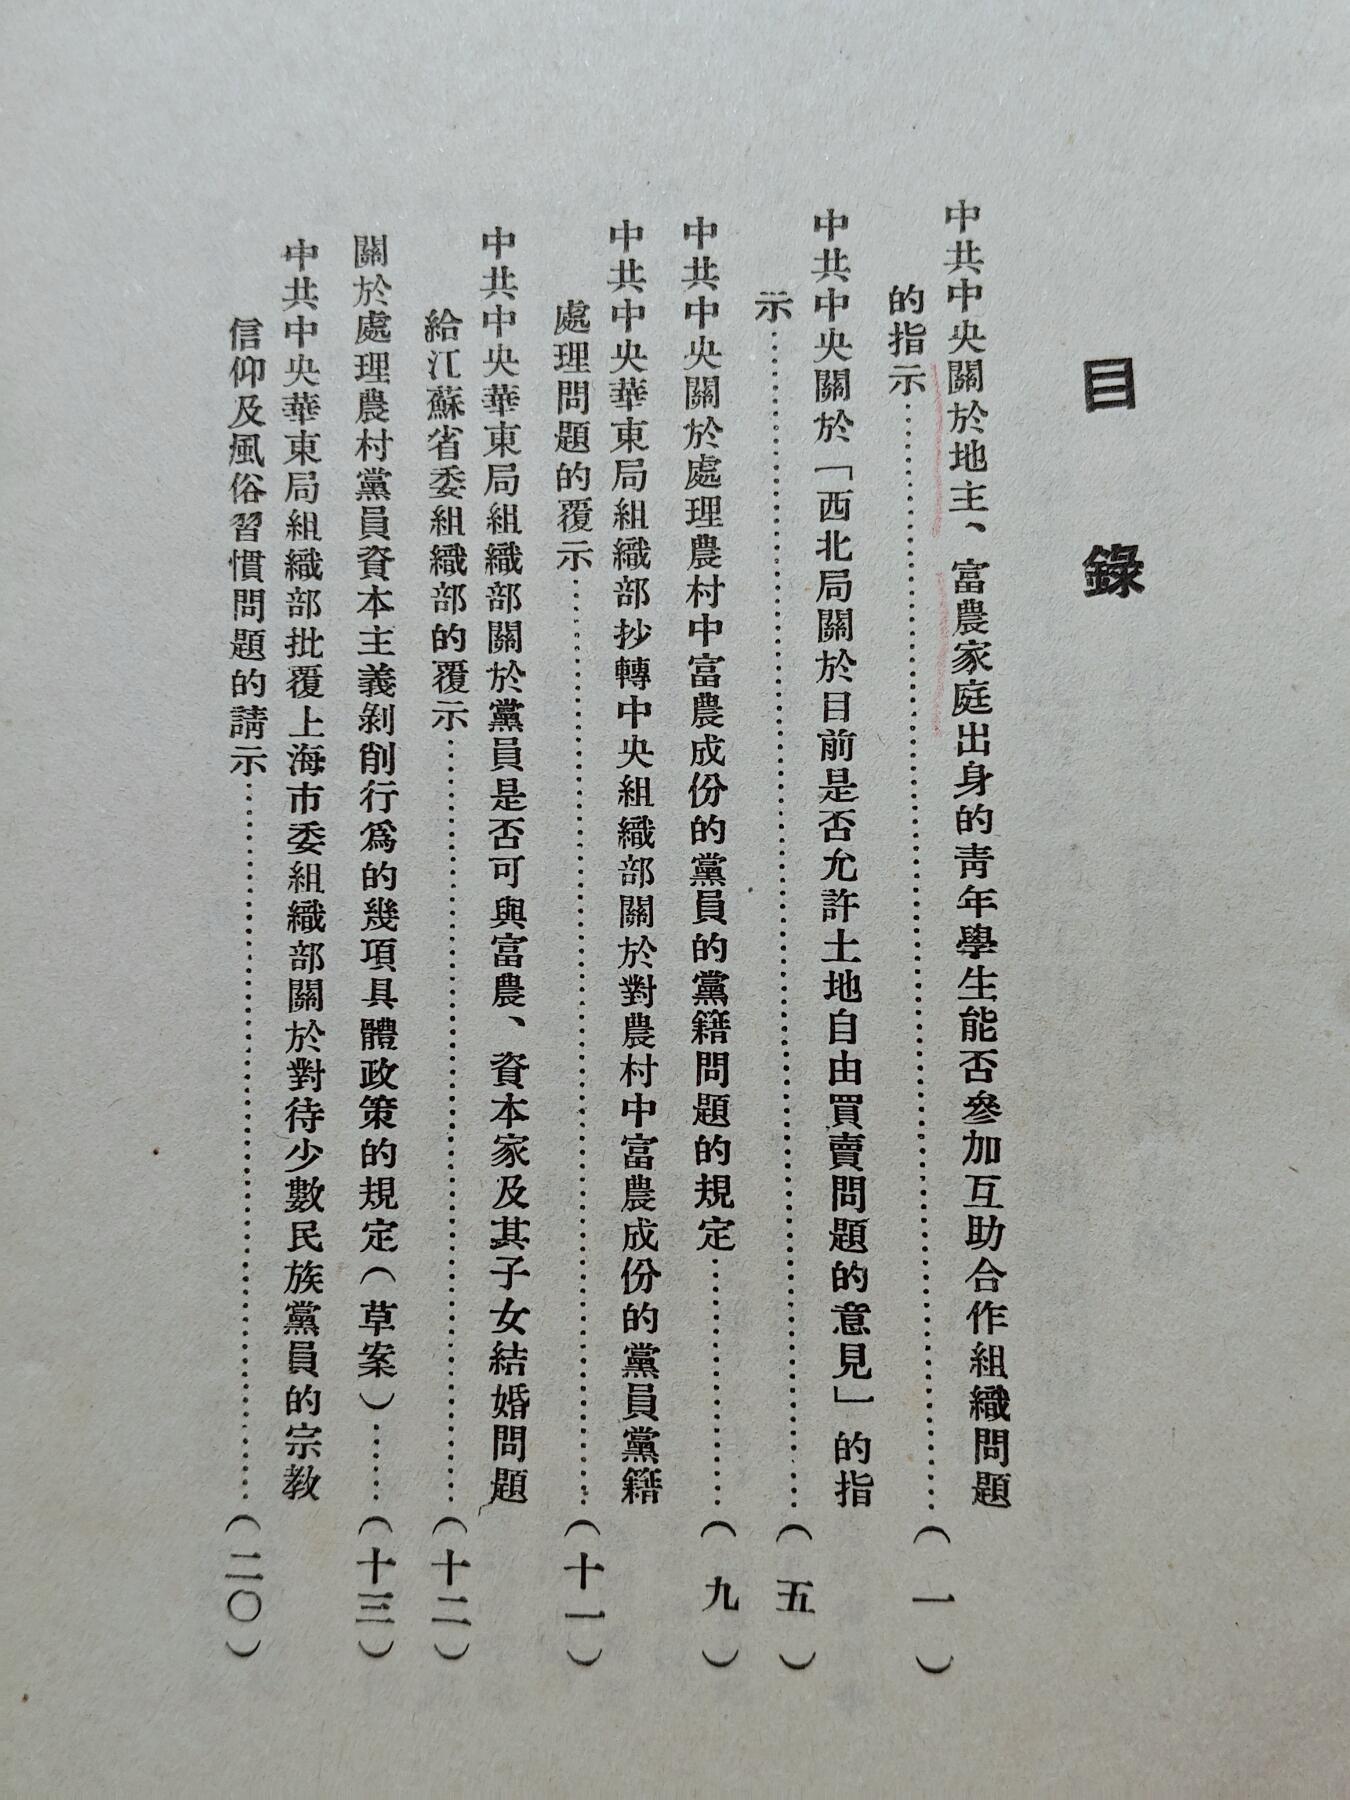 目錄
中共中央關於地主、富農家庭出身的青年學生能否參加互助合作組織問題
的指示……………………（一）
中共中央關於「西北局關於目前是否允許土地自由買賣問題的意見」的指
示……………………（五）
中共中央關於處理農村中富農成份的黨員的黨籍問題的規定……………（九）
中共中央華東局組織部抄轉中央組織部關於對農村中富農成份的黨員黨籍
處理問題的覆示……………………（十一）
中共中央華東局組織部關於黨員是否可與富農、資本家及其子女結婚問題
給江蘇省委組織部的覆示……………………（十二）
關於處理農村黨員資本主義剝削行爲的幾項具體政策的規定（草案）……（十三）
中共中央華東局組織部批覆上海市委組織部關於對待少數民族黨員的宗教
信仰及風俗習慣問題的請示……………………（二〇）